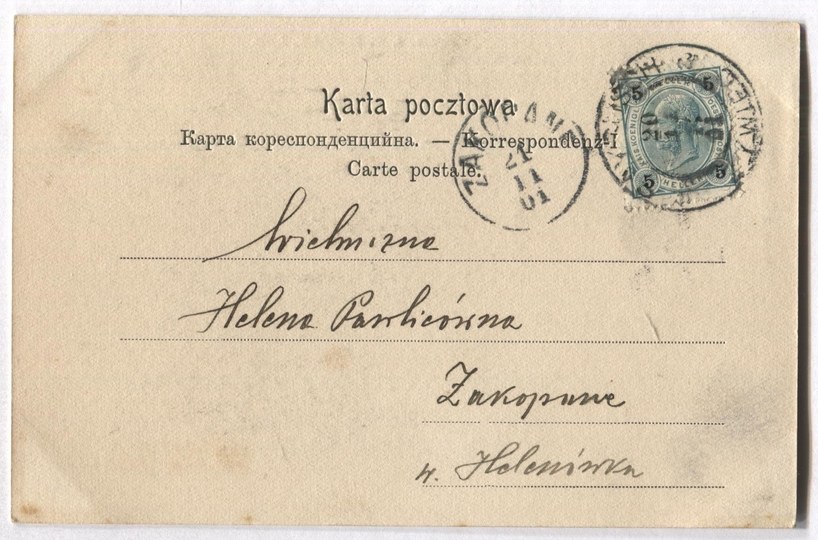 Karta pocztowa
Карта кореспонденцийна. — Korrespondenz-
Carte postale.
ZAKOPANE
21
11
01
20
11
01
5 5
HELLER
5 5
Wielmożna
Helena Pawlicówna
Zakopane
w. Helenówka